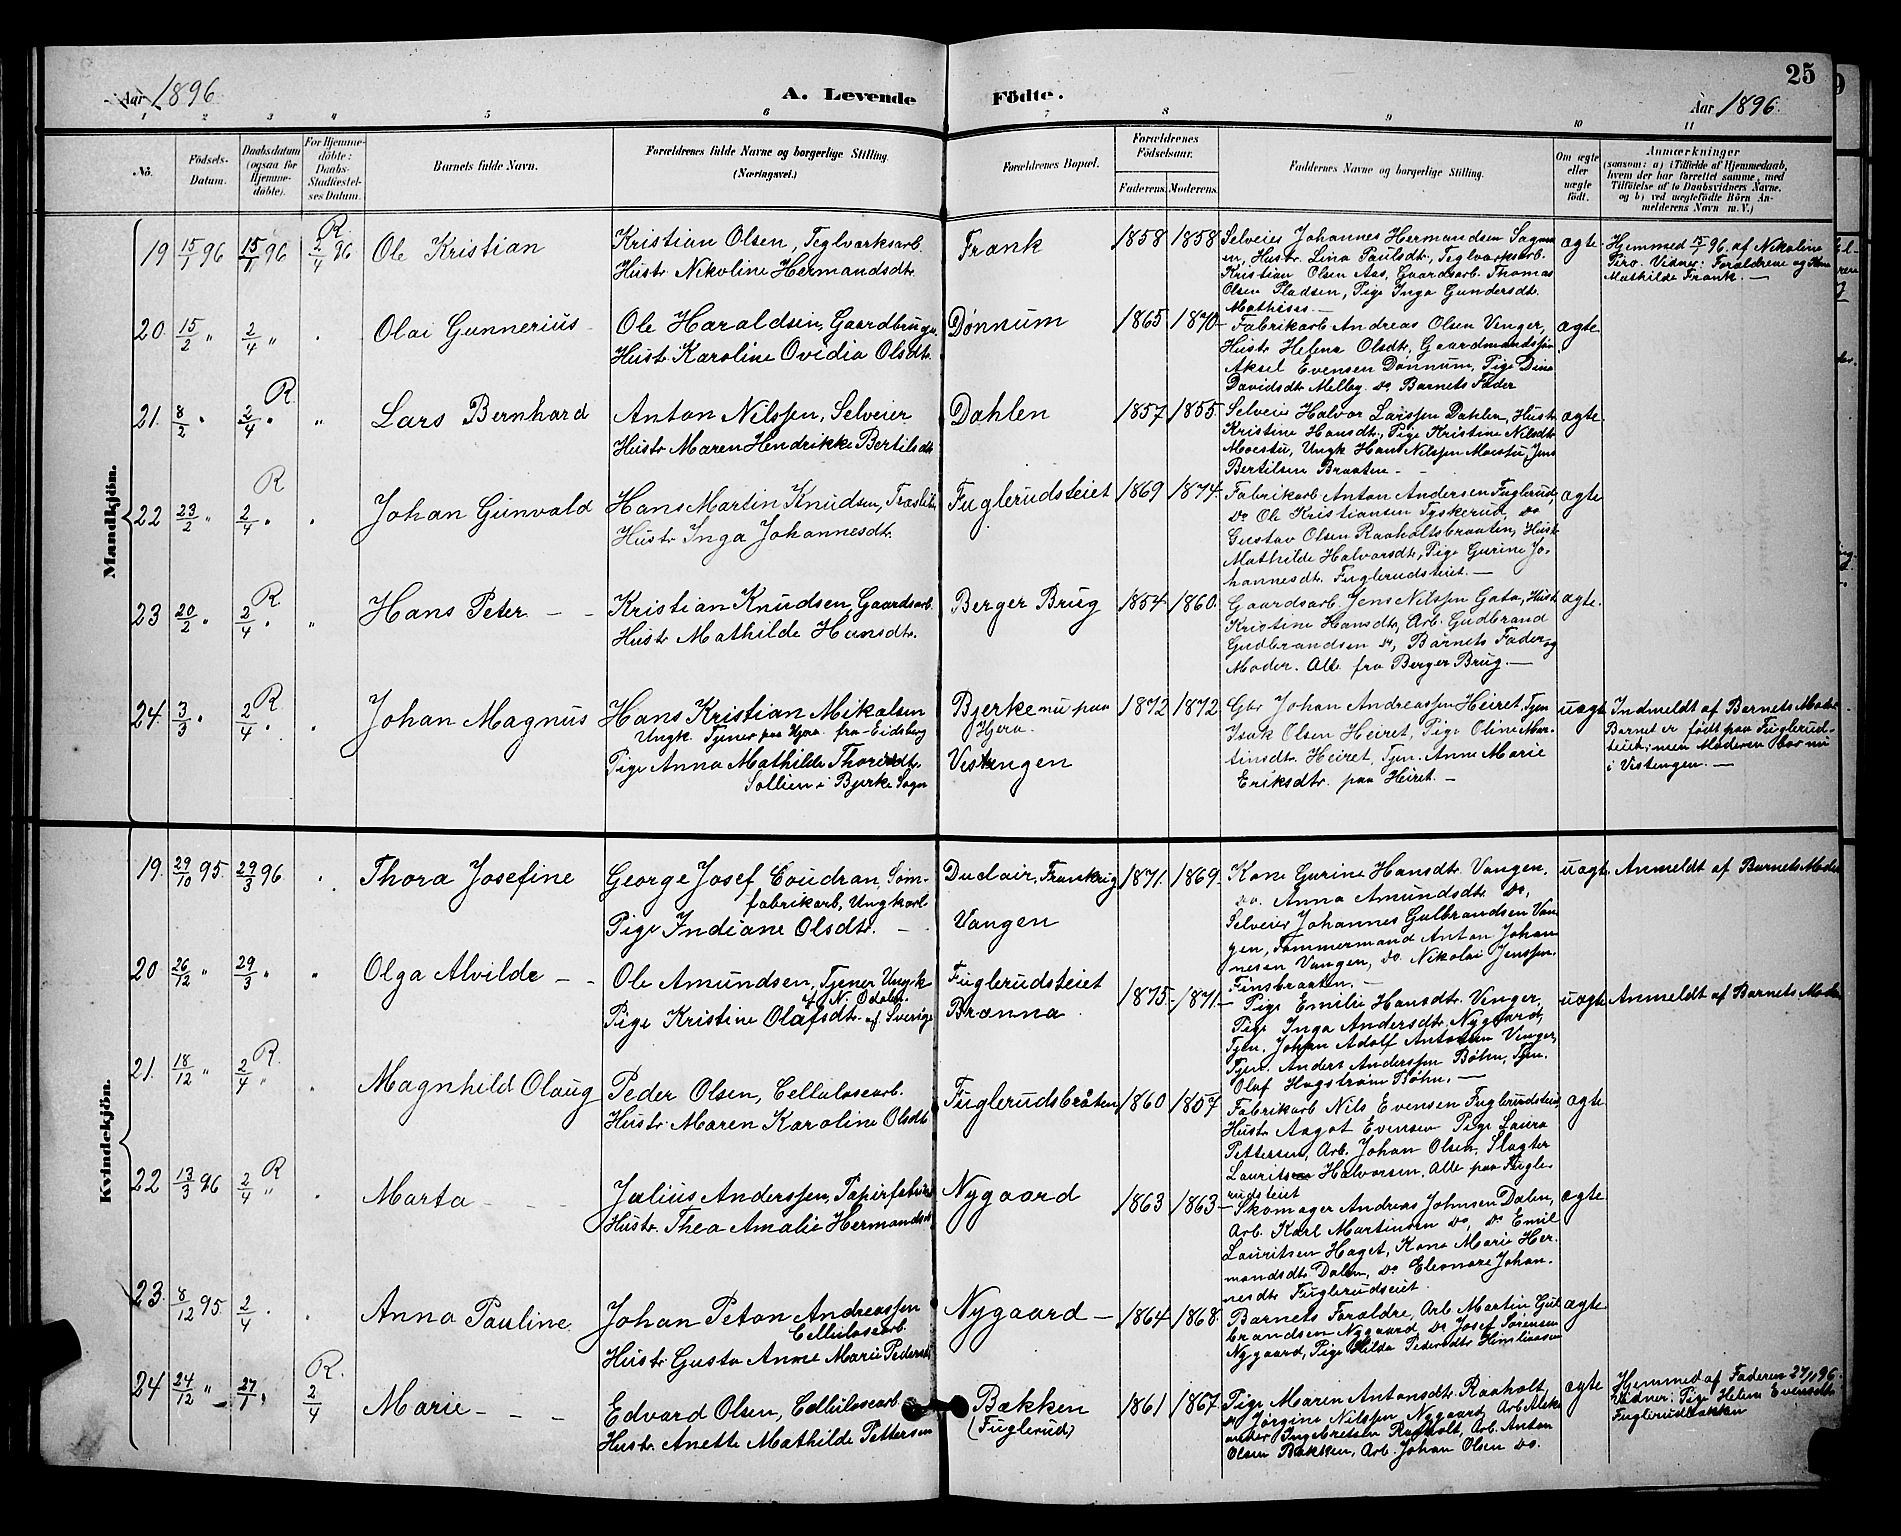 Aar 1896
A. Levende Födte.
Aar 1896.
25
1 2 3 4 5 6 7 8 9 10 11
No.
Födsels-Datum.
Daabsdatum (ogsaa for Hjemme-döbte).
For Hjemme-döbte: Daabs-Stadfæstel-ses Datum.
Barnets fulde Navn.
Forældrenes fulde Navne og borgerlige Stilling. (Næringsvei.)
Forældrenes Bopæl.
Forældrenes Födselsaar.
Faderens. Moderens.
Faddernes Navne og borgerlige Stilling.
Om ægte eller uægte födt.
Anmærkninger
(saasom: a) i Tilfælde af Hjemmedaab,
hvem der har forrettet samme, med
Tilföielse af to Daabsvidners Navne,
og b) ved uægtefödte Börn An-
melderens Navn m. V.)
Mandkjön.
19 15/1 96 15/1 96 R. 2/4 96 Ole Kristian
Kristian Olsen, Teglværksarb.
Hustr. Nikoline Hermandsdtr.
Frank 1858 1858
Selveier Johannes Hermandsen
Hustr. Lina Paulsdtr, Teglværksarb.
Kristian Olsen Aas, Gaardsarb. Thomas
Olsen Pladsen, Pige Inga Gundersdtr.
Mathises. —
ægte
Hjemmed 15/1 96. af Nikoline
Vidner: Forældrene og
Mathilde Frank. —
20. 15/2 " 2/4 " Olai Gunnerius
Ole Haraldsen, Gaardbruger
Hustr. Karoline Ovidia Olsdtr.
Dönnum 1865 1870
Fabrikarb Andreas Olsen Vinger,
Hustr Helene Olsdtr,
Aksel Evensen Dönnum, Pige Dina
Davidsdtr Melby. Do Barnets Fader
ægte
21. 8/2 " 2/4 " R " Lars Bernhard
Anton Nilssen, Selveier
Hustr Maren Hendrikke Bertilsdtr
Dahlen 1857 1855
Selveier Halvor Larssen Dahlen, Hustr
Kristine Hansdtr, Pige Kristine Nilsdtr
Moestu, Ungk Hans Nilssen Moestu, Jens
Bertilsen Braaten —
ægte
22 23/2 " 2/4 " R Johan Gunvald
Hans Martin Knudsen,
Hustr Inga Johannesdtr.
Fuglerudsteiet 1869 1874
Fabrikarb Anton Andersen Fuglerud,
Do Ole Kristiansen Tyskerud, Do
Gustav Olsen Raaholtsbraaten, Hustr
Mathilde Halvorsdtr, Pige Gurine Jo-
hannesdtr. Fuglerudsteiet. —
ægte
23 20/2 " 2/4 " R " Hans Peter
Kristian Knudsen, Gaardsarb.
Hustr Mathilde Hansdtr.
Berger Brug 1854 1860.
Gaardsarb. Jens Nilssen Gata, Hustr
Kristine Hansdtr, Arb. Gudbrand
Gudbrandsen Do, Barnets Fader og
Moder. Alle fra Berger Brug. —
ægte.
24. 3/3 " 2/4 " R Johan Magnus
Hans Kristian Mikalsen
Ungk. Tjener paa Hjera fra Eidsberg
Pige Anna Mathilde
Sollien i Bjerke Sogn
Bjerke nu paa
Hjera.
Vestengen
1872 1872
Gbr Johan Andreassen Heiret, Tjen
Isak Olsen Heiret, Pige Oline Mar-
tinsdtr. Heiret, Tjen. Anne Marie
Eriksdtr. paa Heiret. —
uægte
Indmeldt af Barnets Moder
Barnet er født paa Fuglerud-
teiet; men Moderen bor nu
i Vistengen. —
Kvindekjön.
19. 29/10 95. 29/3 96 Thora Josefine
George Josef Coudran, Søm-
fabrikarb, Ungkarl
Pige Indiane Olsdtr. —
Duclair, Frankrig
Vangen
1871. 1869
Kone Gurine Hansdtr Vangen.
Do. Anna Amundsdtr Do,
Selveier Johannes Gulbrandsen Van-
gen, Tømmermand Anton Johan
nesen Vangen, Do. Nikolai Jenssen.
Finsbraaten. —
uægte Anmeldt af Barnets Moder
20 26/12 " 29/3 " " Olga Alvilde
Ole Amundsen, Tjener Ungk
af N. Odalen.
Pige Kristine Olafsdtr. af Sverige
Fuglerudsteiet
Brænna
1875 1871
Pige Emilie Hansdtr. Vinger,
Pige Inga Andersdtr Nygaard,
Tjen. Johan Adolf Antonsen Vinger,
Tjen. Anders Anderssen Bøhn, Tjen.
Olaf Hagstrøm Bøhn. —
uægte Anmeldt af Barnets Moder
21. 18/12 " 2/4 " R. Magnhild Olaug
Peder Olsen, Cellulosearb.
Hustr. Maren Karoline Olsdtr
Fuglerudsbråten 1860 1857
Fabrikarb Nils Evensen Fuglerudsteiet,
Hustr Aagot Evensen Pige Laura
Pettersen, Arb. Johan Olsen, Slagter
Lauritsen Halvorsen. Alle paa Fugle-
rudsteiet
ægte
22 13/3 96 2/4 " R Marta
Julius Anderssen, Papirfabrik
Hustr. Thea Amalie Hermandsdtr
Nygaard 1863 1863
Skomager Andreas Johnsen Dalen,
Arb. Karl Martinsen Do, Do Emil
Lauritsen Haget, Kone Marie Her-
mandsdtr Dalen, Do Eleonore Johan-
nesdtr Fuglerudseiet
ægte
23. 8/12 95 2/4 " Anna Pauline
Johan Peton Andreassen
Cellulosearb.
Hustr Gusta Anne Marie Pedersdtr
Nygaard — 1864 1868.
Barnets Forældre, Arb. Martin Gul
brandsen Nygaard, Do Josef Sørensen
Nygaard, Pige Hilda Pedersdtr
ægte
24 24/12 " 27/1 " R. 2/4 Marie
Edvard Olsen, Cellulosearb
Hustr. Anette Mathilde Pettersen
Bækken
(Fuglerud)
1861 1867
Pige Maren Antonsdtr. Raaholt,
Do Jørgine Nilssen Nygaard, Arb Aleks
ander Ingebretsen Raaholt, Arb. Anton
Olsen Bakken, Arb. Johan Olsen Do.
ægte
Hjemmed af Faderen 27/1 96.
Vidner: Pige Helene Evensdtr
Fuglerudbakken